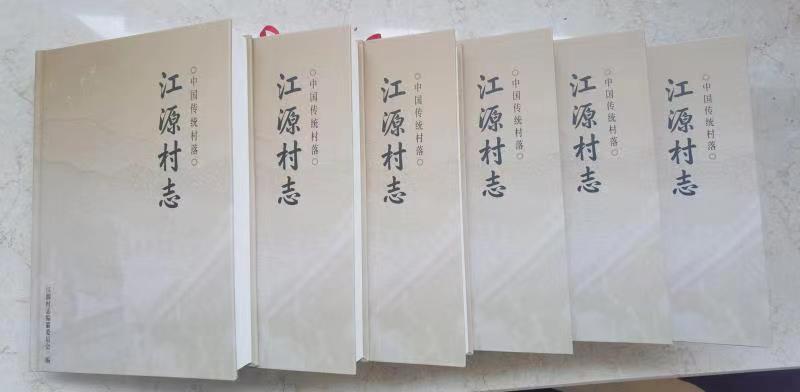 ○中国传统村落○
江源村志
江源村志编纂委员会 编
○中国传统村落○
江源村志
○中国传统村落○
江源村志
○中国传统村落○
江源村志
○中国传统村落○
江源村志
○中国传统村落○
江源村志